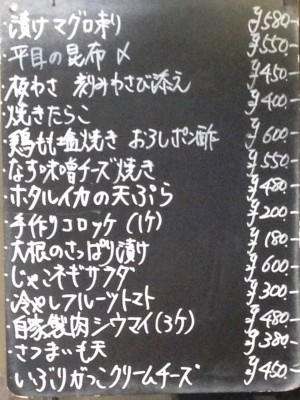 ・漬けマグロ刺し ¥580-
・平目の昆布〆 ¥550-
・板わさ 刻みわさび添え ¥450-
・焼きたらこ ¥400-
・鶏もも塩焼き おろしポン酢 ¥600-
・なす味噌チーズ焼き ¥550-
・ホタルイカの天ぷら ¥480-
・手作りコロッケ(1ケ) ¥200-
・大根のさっぱり漬け ¥180-
・じゃこネギサラダ ¥600-
・冷やしフルーツトマト ¥300-
・自家製肉シウマイ(3ケ) ¥480-
・さつまいも天 ¥380-
・いぶりがっこクリームチーズ ¥450-